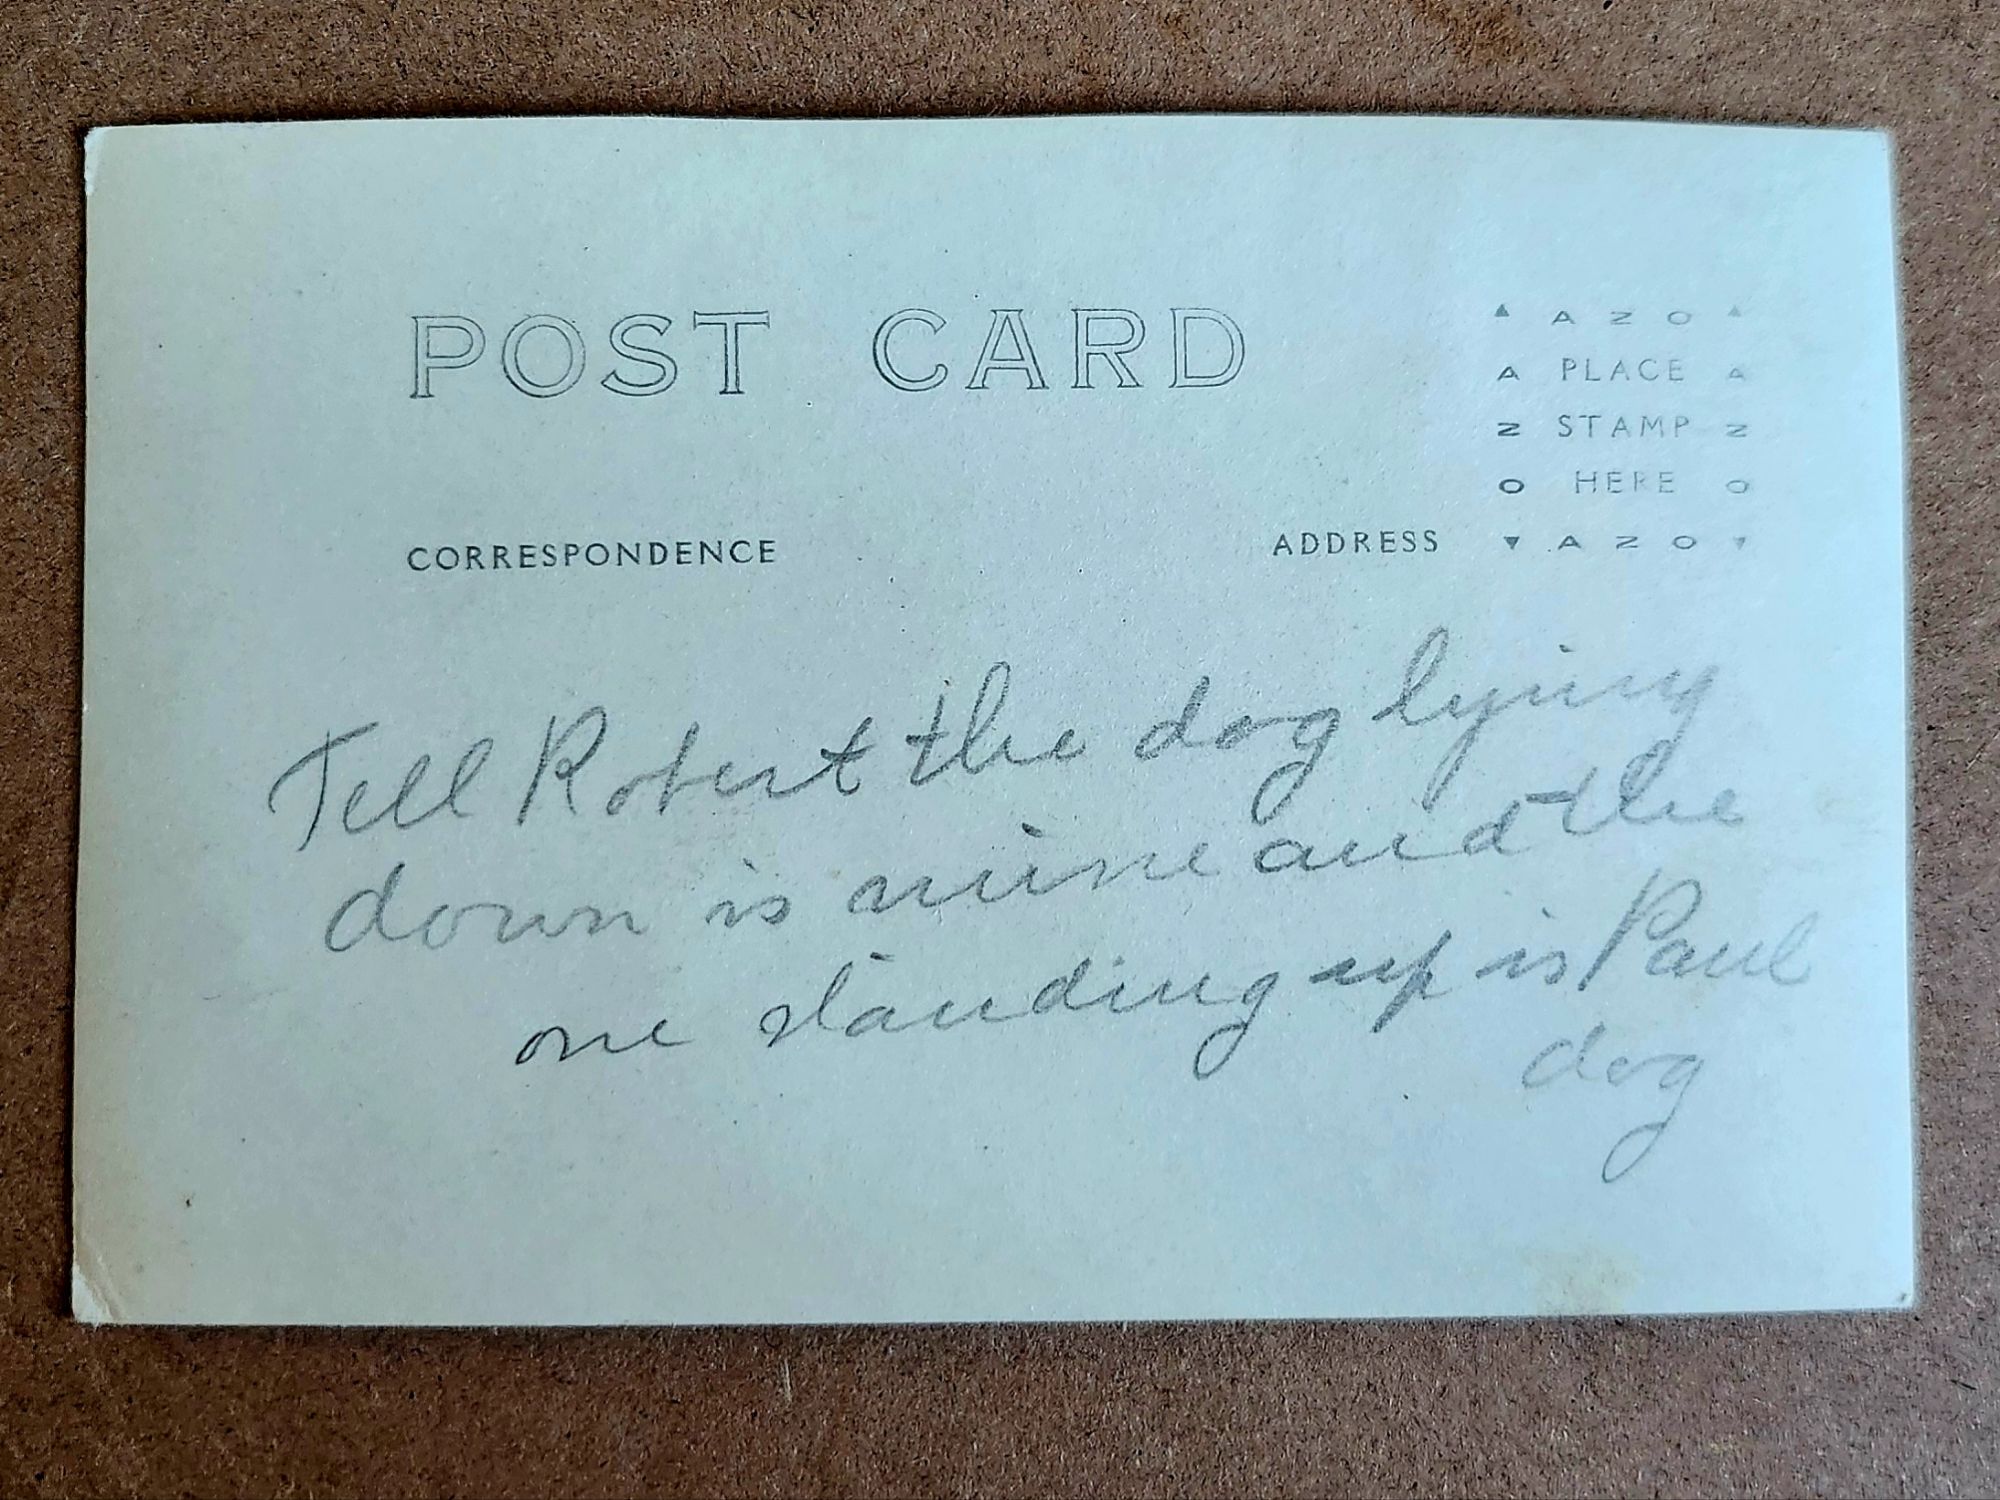 POST CARD
▲ AZO ▲
A PLACE A
Z STAMP Z
O HERE O
▼ AZO ▼
CORRESPONDENCE
ADDRESS
Tell Robert the dog lying
down is mine and the
one standing up is Paul
dog